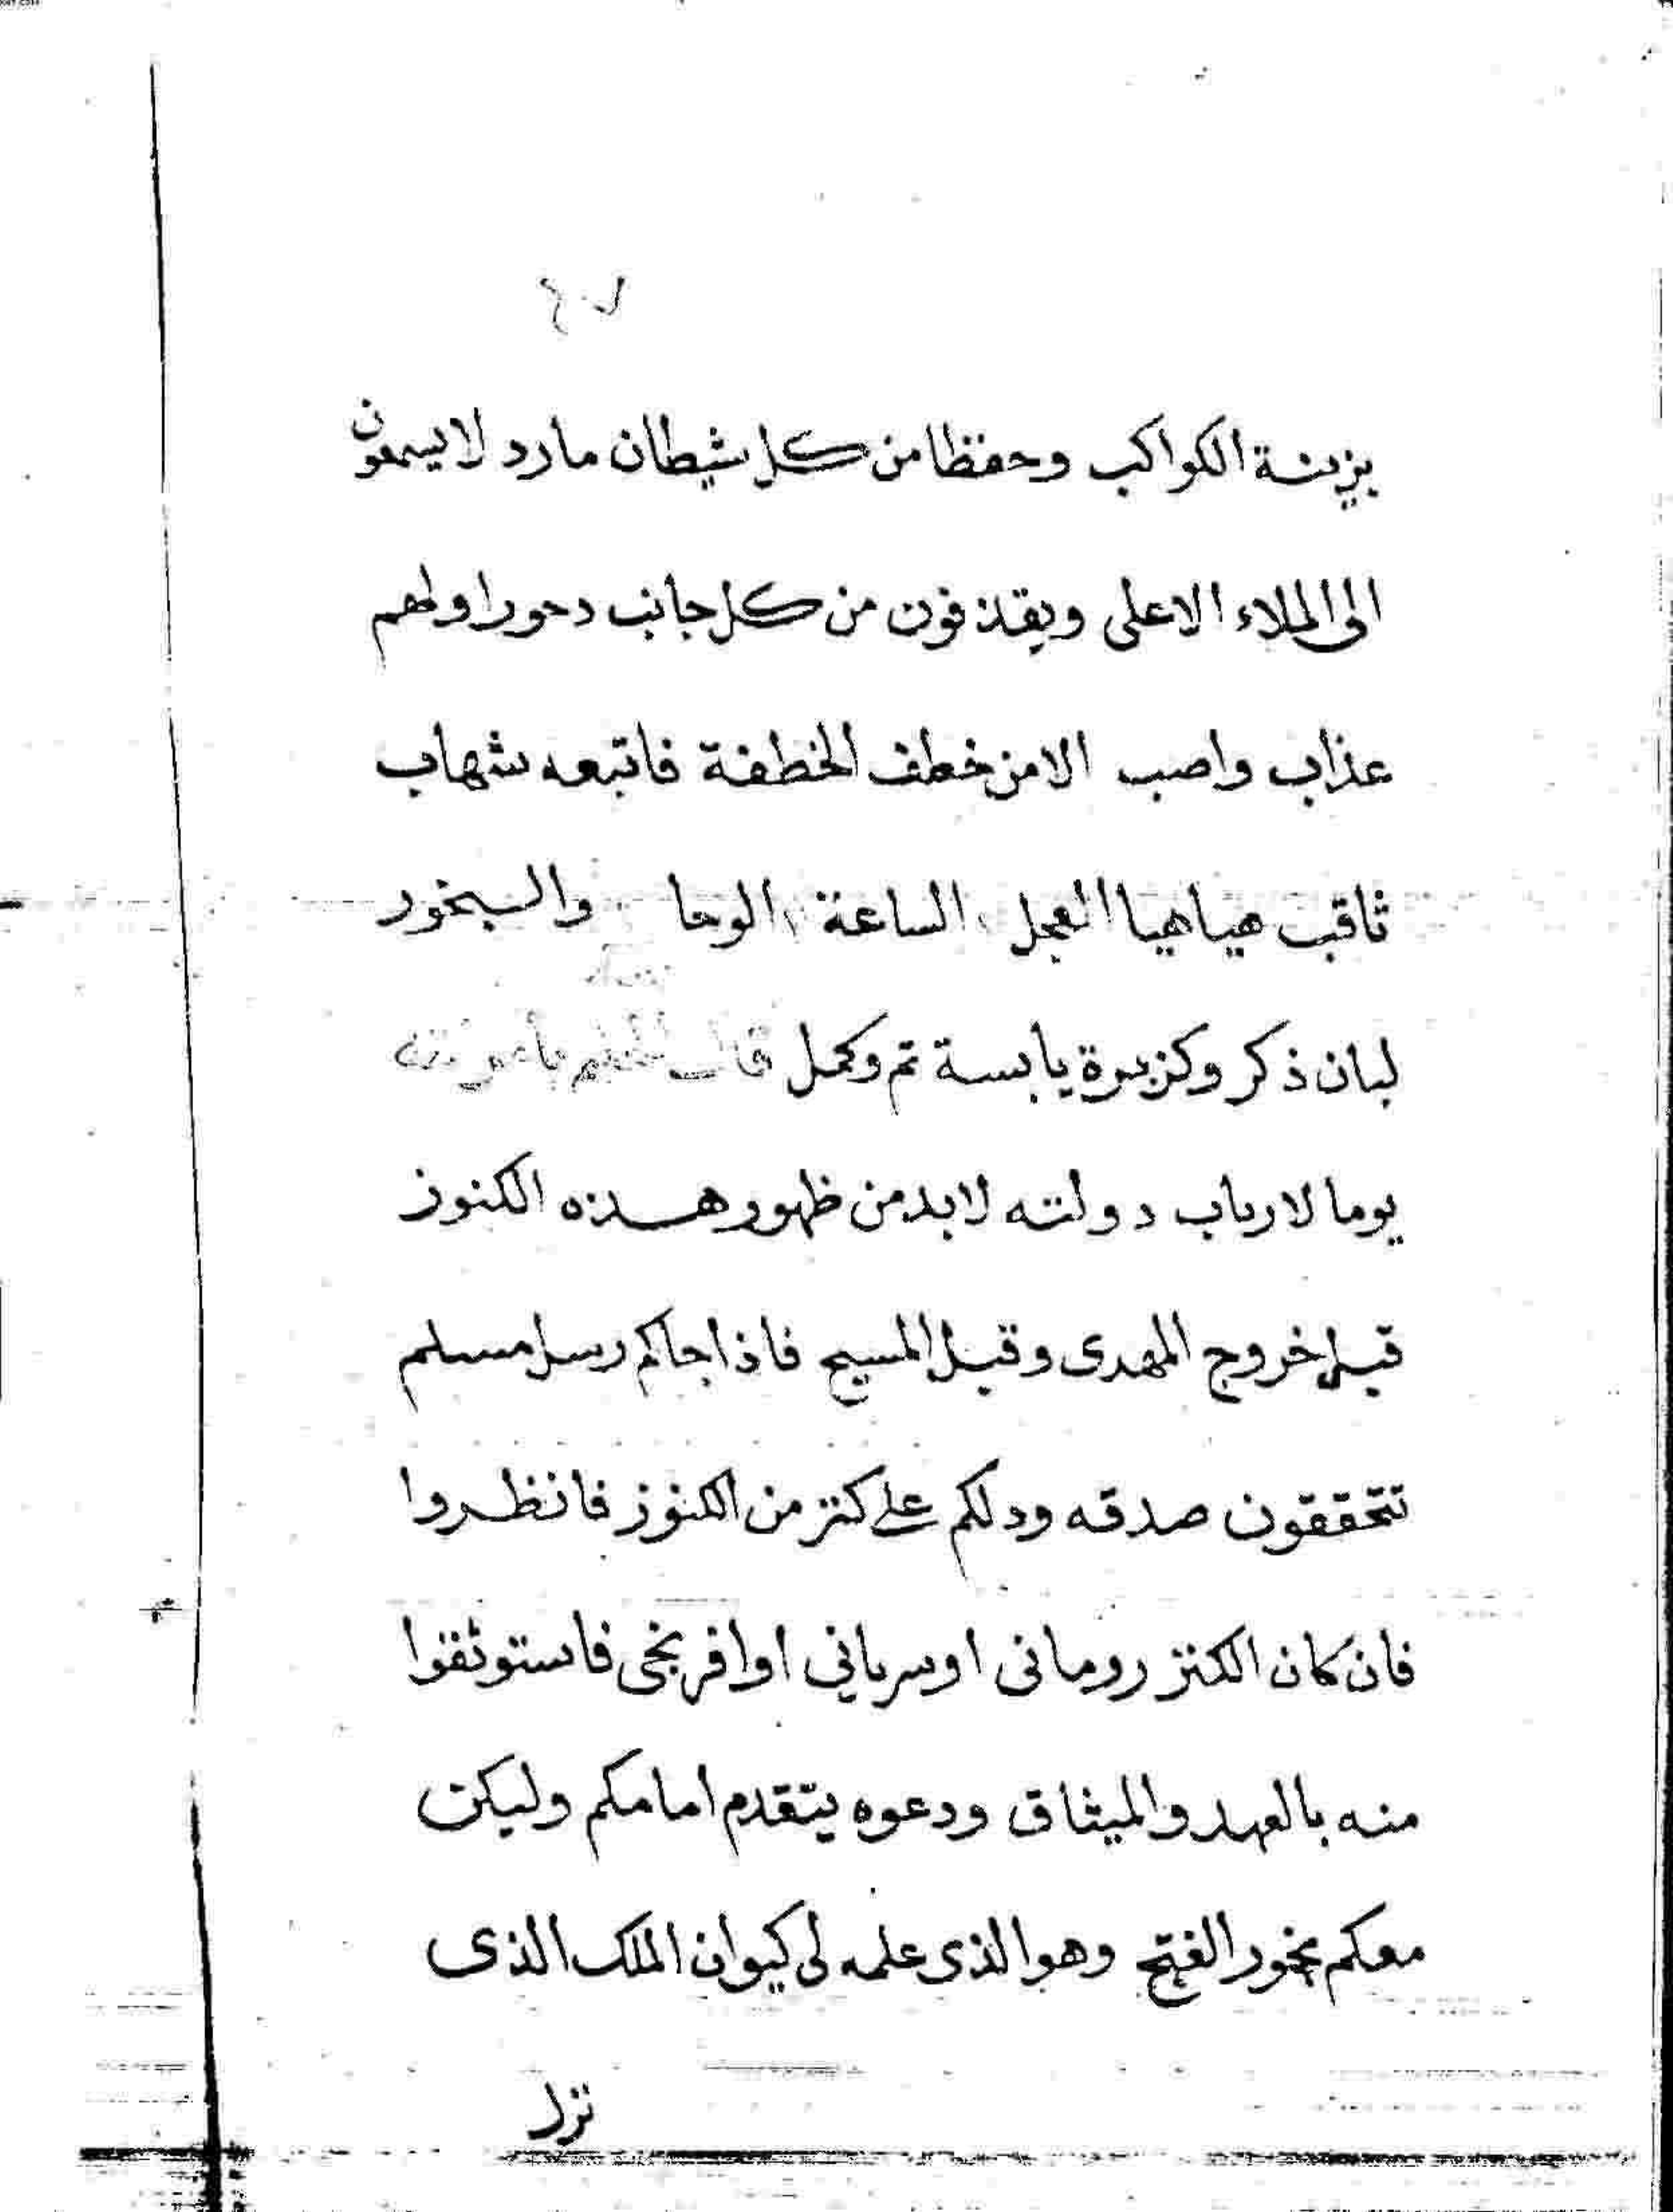 بزينة الكواكب وحفظا من كل شيطان مارد لا يسمعون
الى الملاء الاعلى ويقذفون من كل جانب دحورا ولهم
عذاب واصب الا من خطف الخطفة فاتبعه شهاب
ثاقب هيا هيا العجل الساعة الوحا والبخور
لبان ذكر وكزبرة يابسة تم وكمل قال
يوما لارباب دولته لا بد من ظهور هذه الكنوز
قبل خروج المهدى وقبل المسيح فاذا جاكم رسل مسلم
تتحققون صدقه ودلكم على كنز من الكنوز فانظروا
فان كان الكنز رومانى او سرياني او افرنجى فاستوثقوا
منه بالعهد والميثاق ودعوه يتقدم امامكم وليكن
معكم بخور الفتح وهو الذى علمه لى كيوان الملك الذى
نزل